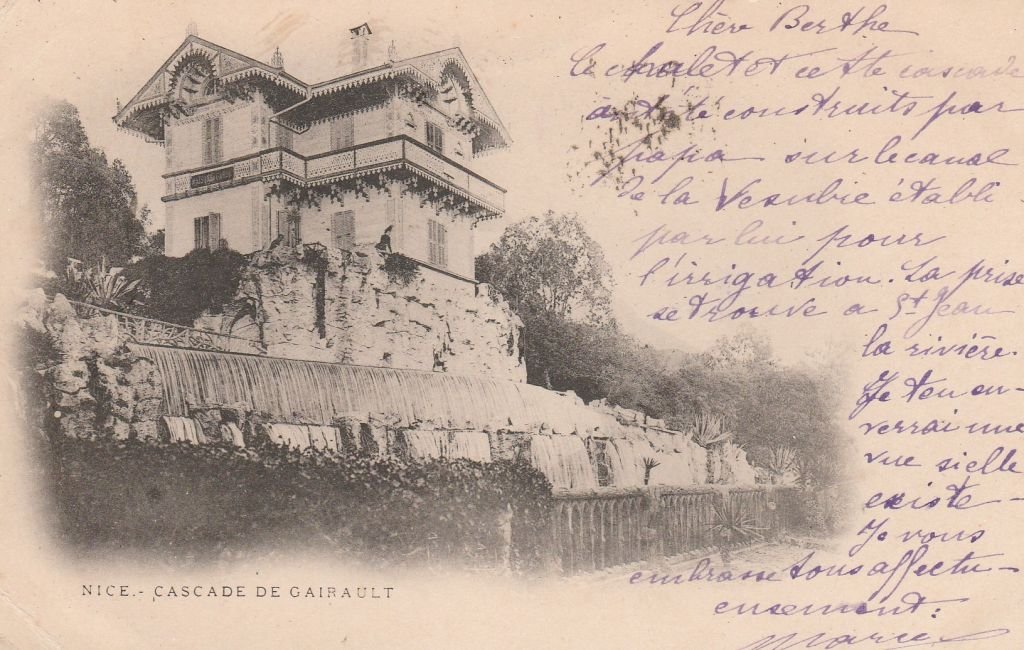 Chère Berthe
le chalet et cette cascade
ont été construits par
papa sur le canal
de la Vesubie établi
par lui pour
l'irrigation. La prise
se trouve a St Jean
la rivière.
Je t'en en-
verrai une
vue si elle
existe-
Je vous
embrasse tous affectu-
eusement:
Marie
NICE.- CASCADE DE GAIRAULT